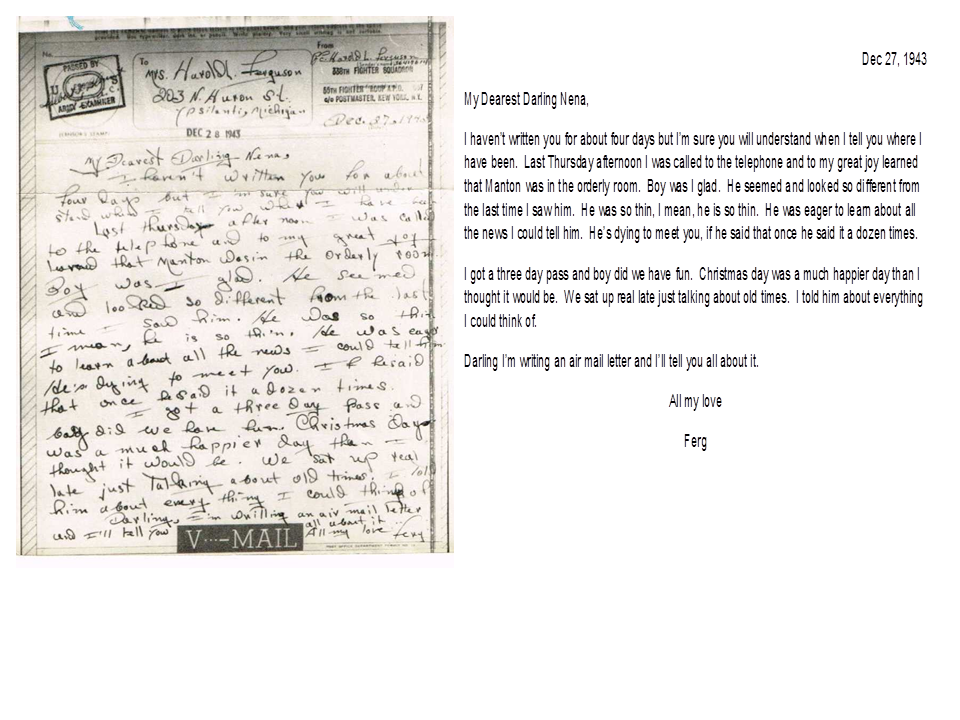 No.
PASSED BY
U S
ARMY EXAMINER
(CENSOR'S STAMP)
To
Mrs. Harold L. Ferguson
203 N. Huron St.
Ypsilanti, Michigan
DEC 28 1943
From
338TH FIGHTER SQUADRON
55TH FIGHTER GROUP A.P.O.
c/o POSTMASTER, NEW YORK, N.Y.
My Dearest Darling Nena,
I haven't written you for about
four days but I'm sure you will under
stand when I tell you where I have been
Last Thursday after noon I was called
to the telephone and to my great joy
learned that Manton was in the orderly room.
Boy was I glad. He seemed
and looked so different from the last
time I saw him. He was so thin
I mean, he is so thin. He was eager
to learn about all the news I could tell him
He's dying to meet you. If he said
that once he said it a dozen times.
I got a three day pass and
boy did we have fun. Christmas Day
was a much happier day than I
thought it would be. We sat up real
late just talking about old times. I told
him about every thing I could think of
Darling, I'm writing an air mail letter
and I'll tell you all about it.
All my love Ferg
V···-MAIL
Dec 27, 1943
My Dearest Darling Nena,
I haven't written you for about four days but I'm sure you will understand when I tell you where I
have been. Last Thursday afternoon I was called to the telephone and to my great joy learned
that Manton was in the orderly room. Boy was I glad. He seemed and looked so different from
the last time I saw him. He was so thin, I mean, he is so thin. He was eager to learn about all
the news I could tell him. He's dying to meet you, if he said that once he said it a dozen times.
I got a three day pass and boy did we have fun. Christmas day was a much happier day than I
thought it would be. We sat up real late just talking about old times. I told him about everything
I could think of.
Darling I'm writing an air mail letter and I'll tell you all about it.
All my love
Ferg